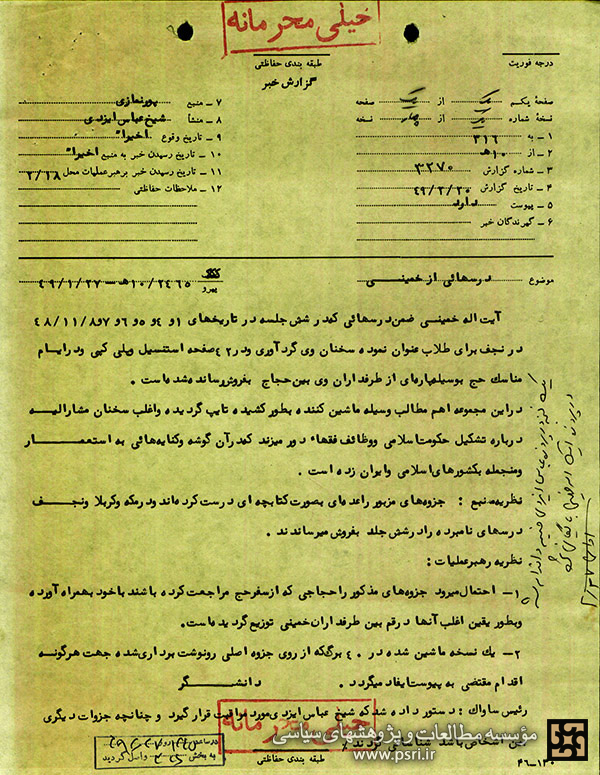 خیلی محرمانه
طبقه بندی حفاظتی
گزارش خبر
درجه فوریت
صفحهٔ یکم یک از یک صفحه
نسخهٔ شماره یک از چهار نسخه
۱ – به ۳۱۶
۲ – از ۱۰ه‍
۳ – شماره گزارش ۳۲۷۰
۴ – تاریخ گزارش ۴۹/۲/۲۰
۵ – پیوست دارد
۶ – گیرندگان خبر
۷ – منبع پورنمازی
۸ – منشأ شیخ عباس ایزدی
۹ – تاریخ وقوع اخیرا"
۱۰ – تاریخ رسیدن خبر به منبع اخیرا"
۱۱ – تاریخ رسیدن خبر برهبر عملیات محل ۲/۱۸
۱۲ – ملاحظات حفاظتی
موضوع درسهائی از خمینی
پیرو ۱۰/۲۴۶۵ه‍ – ۴۹/۱/۲۷
آیت اله خمینی ضمن درسهائی که در شش جلسه در تاریخهای ۱ و ۴ و ۵ و ۶ و ۷ و ۴۸/۱۱/۸
در نجف برای طلاب عنوان نموده سخنان وی گردآوری و در ۲۴ صفحه استنسیل و پلی کپی و در ایام
مناسك حج بوسیله پاره‌ای از طرفداران وی بین حجاج بفروش رسانده شده است .
در این مجموعه اهم مطالب وسیله ماشین کننده بطور کشیده تایپ گردیده و اغلب سخنان مشارالیه
درباره تشکیل حکومت اسلامی و وظائف فقهاء دور میزند که در آن گوشه و کنایه‌هائی به استعمــــار
ومنجمله بکشورهای اسلامی و ایران زده است .
نظریه منبع : جزوه‌های مزبور را عده‌ای بصورت کتابچه ای درست کرده‌اند و در مکه و کربلا و نجف
درسهای نامبرده را در شش جلد بفروش میرساندند .
نظریه رهبر عملیات :
۱– احتمال میرود جزوه‌های مذکور را حجاجی که از سفر حج مراجعت کرده باشند با خود بهمراه آورده
وبطور یقین اغلب آنها در قم بین طرفداران خمینی توزیع گردیده است.
۲– یك نسخه ماشین شده در ۴۰ برگ که از روی جزوه اصلی رونوشت برداری شده جهت هرگونه
اقدام مقتضی به پیوست ایفاد میگردد . دانشــگر
رئیس ساواك : دستور داده شد که شیخ عباس ایزدی مورد مراقبت قرار گیرد و چنانچه جزوات دیگری
بین اشخاص باشد شناسائی گردند
خیلی محرمانه
طبقه بندی حفاظتی
۱۳۰–۴۶
مؤسسه مطالعات و پژوهشهای سیاسی
www.psri.ir